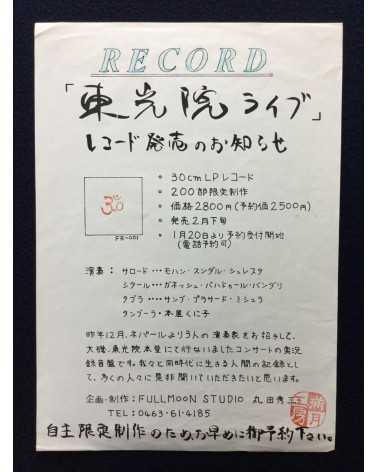 RECORD
「東光院ライブ」
レコード発売のお知らせ
• 30cm LPレコード
• 200部限定制作
• 価格2800円(予約価2500円)
• 発売2月下旬
• 1月20日より予約受付開始
(電話予約可)
ॐ
FR-001
演奏: サロード…モハン・スンダル・シュレスタ
シタール…ガネッシュ・バハドゥール・バンダリ
タブラ…サンブ・プラサード・ミシュラ
タンブーラ・本屋くに子
昨年12月、ネパールより3人の演奏家をお招きして、
大磯、東光院本堂にて行ないましたコンサートの実況
録音盤です。我々と同時代に生きる人間の記録とし
て、多くの人々に是非聞いていただきたいと思います。
企画・制作: FULLMOON STUDIO 丸田秀三
TEL: 0463-61-4185
満月工房
自主限定制作のため、お早めに御予約下さい。